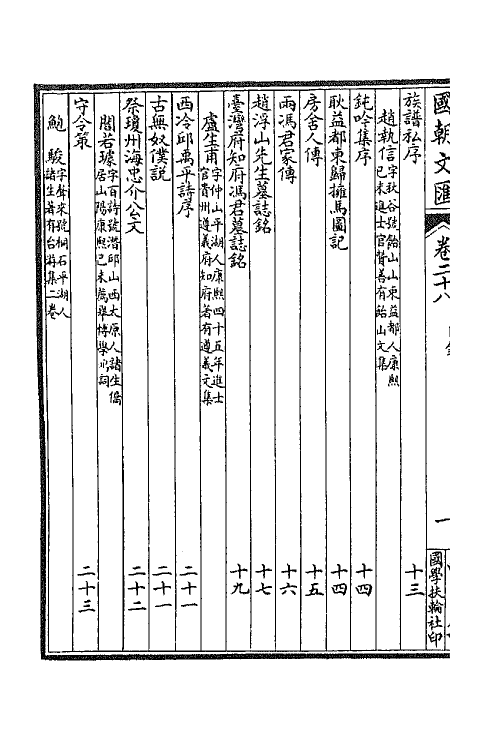 國朝文匯
卷二十八
一
國學扶輪社印
族譜私序 十三
趙執信字秋谷號飴山山東益都人康熙
己未進士官贊善有飴山文集
鈍吟集序 十四
耿益都東歸攤馬圖記 十四
房舍人傳 十五
兩馮君家傳 十六
趙浮山先生墓誌銘 十七
臺灣府知府馮君墓誌銘 十九
盧生甫字仲山平湖人康熙四十五年進士
官貴州遵義府知府著有遵義文集
西泠邱禹平詩序 二十一
古無奴僕說 二十一
祭瓊州海忠介公文 二十二
閻若璩字百詩號潛邱山西太原人諸生僑
居山陽康熙己未薦舉博學鴻詞
守令策 二十三
鮑駿字聲來號桐石平湖人
諸生著有台游集二卷